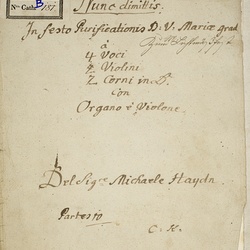 No Cath: B 187
Nunc dimittis.
In festo Purificationis D: V: Mariæ grad
à
4 Voci
2 Violini
2 Corni in B.
con
Organo è Violone.
Del Sigre Michaele Haydn
Partes 10
C. K.